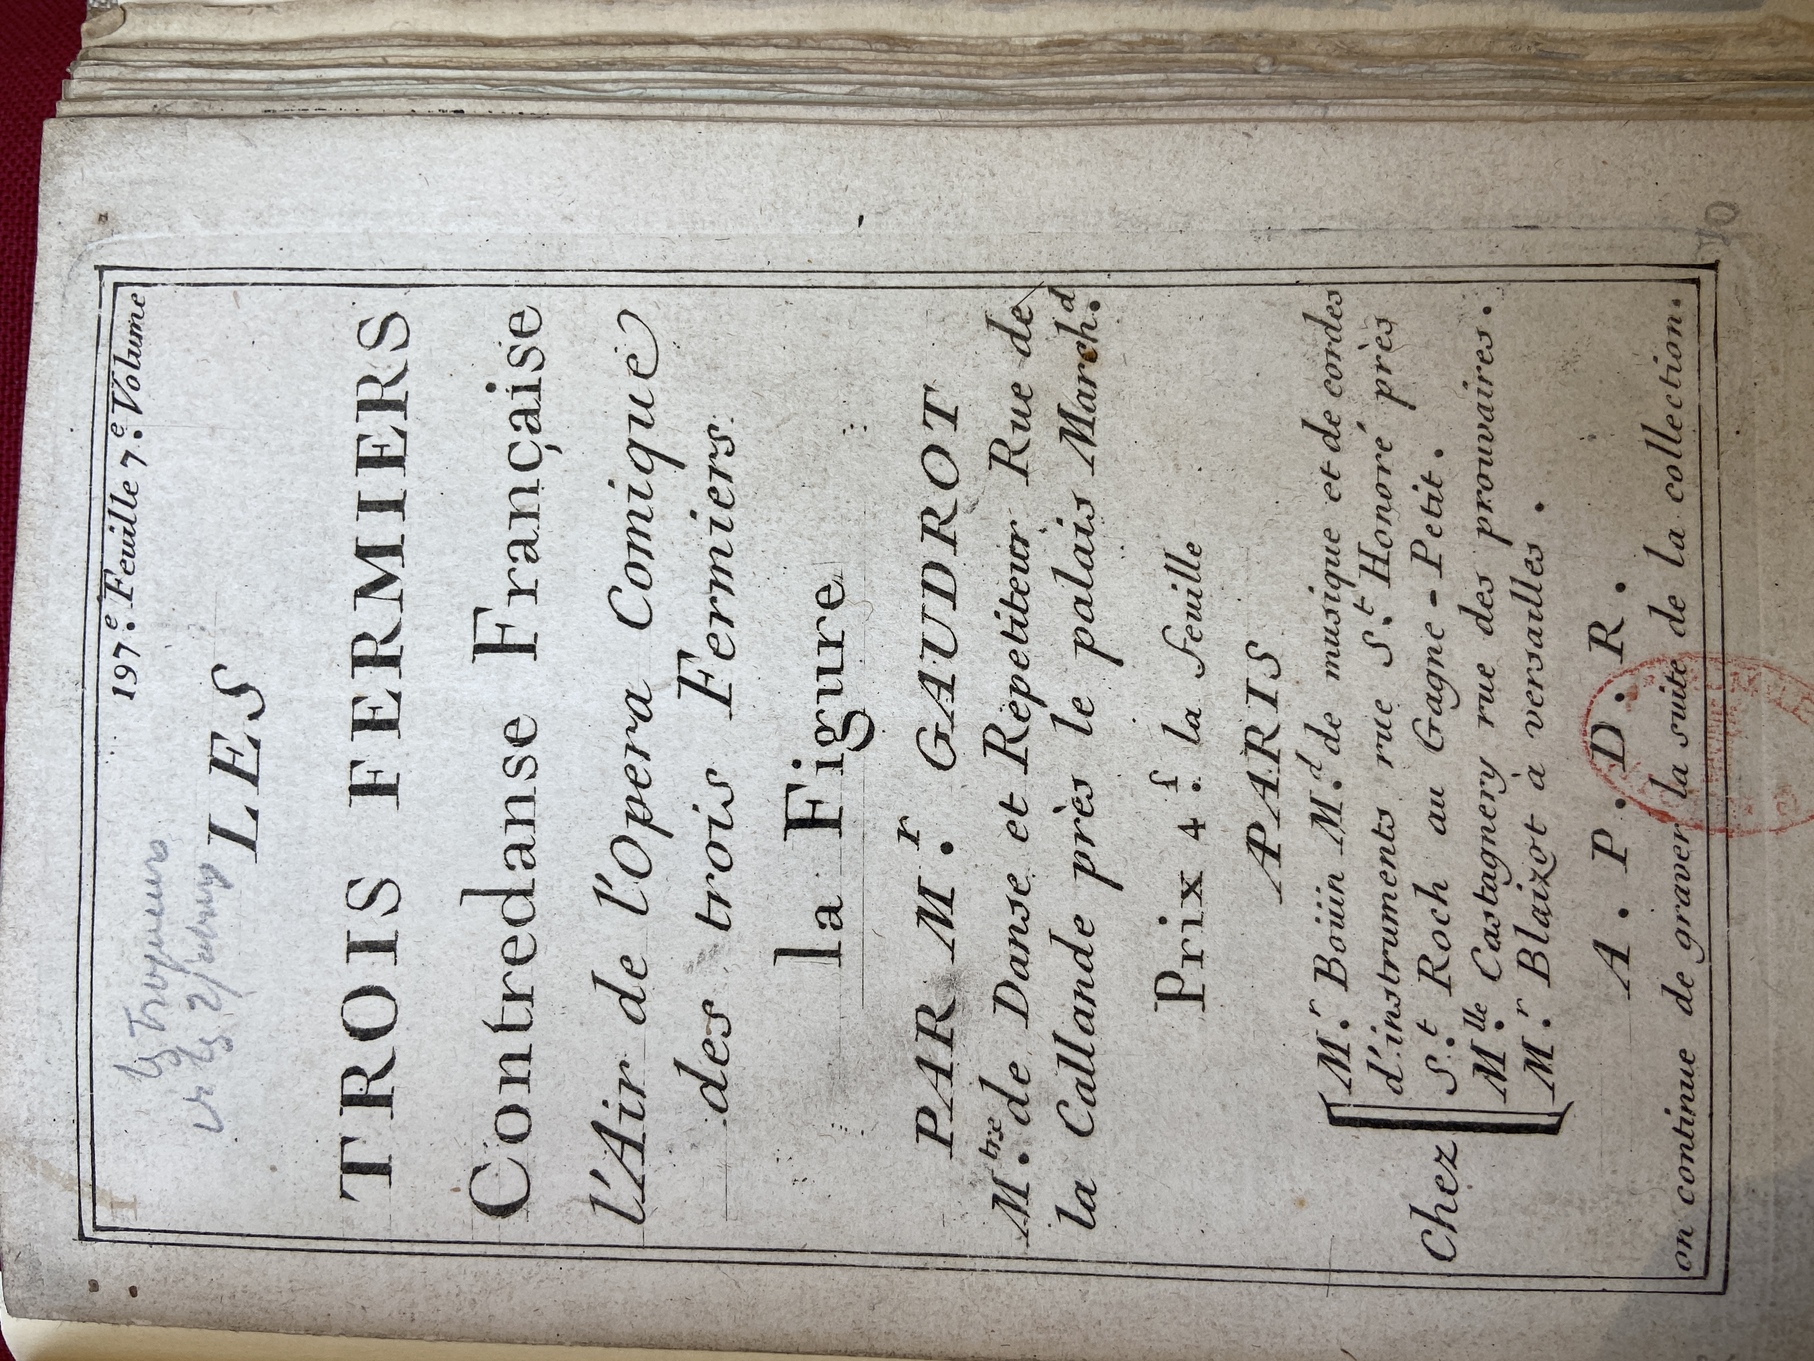 197.e Feuille 7.e Volume
LES
TROIS FERMIERS
Contredanse Française
l'Air de l'Opera Comique
des trois Fermiers.
la Figure
PAR M.r GAUDROT
M.tre de Danse et Repetiteur Rue de
la Callande près le palais March.d
Prix 4.s la feuille
APARIS
Chez
M.r Boüin M.d de musique et de cordes
d'instruments rue S.t Honoré près
S.t Roch au Gagne-Petit.
M.lle Castagnery rue des prouvaires.
M.r Blaizot à versailles.
A. P. D. R.
on continue de graver la suite de la collection.
10